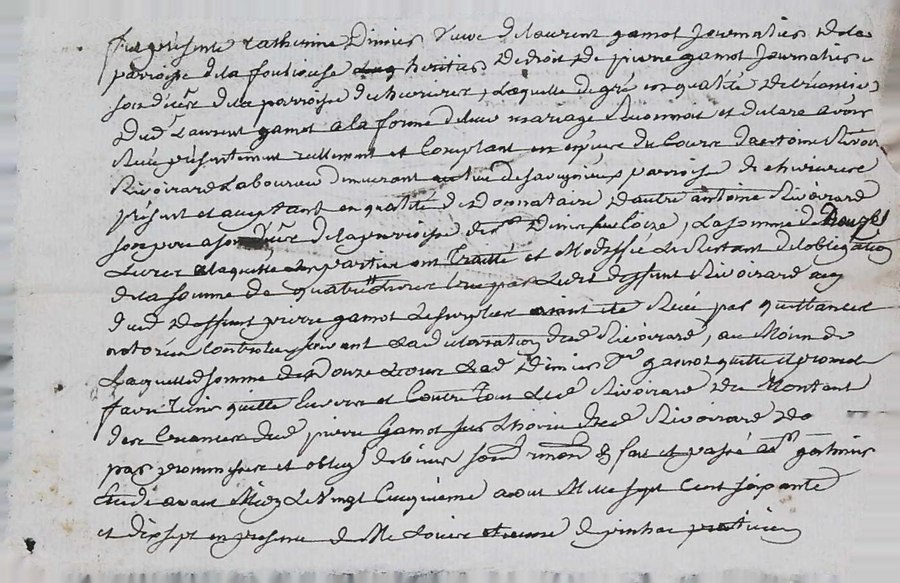 fut présente Catherine Dimier veuve de laurent gamot journalier de la
parroisse de la fouliouse heritier de droit de pierre gamot journalier
son décéz de la parroisse de chevrieres, Laquelle de gré en qualité d'héritiere
dud Laurent gamot a la forme de leur mariage Reconnoit et declare avoir
Reçu présentement reellement et Comptant en espèces du Cours d'antoine
Rivoirard Laboureur demeurant au lieu de savigneux parroisse de chevrieres
présent et acceptant en qualité de donnataire d'autre antoine Rivoirard
son pere a son décéz de la parroisse de st denis sur Coize, La somme de Douze
Livres a laquelle les parties ont traitté et Modifié le Restant de l'obligation
de la somme de quatre Livres par led deffunt Rivoirard
dud deffunt pierre gamot le surplus aiant été Recü par quittances
notoriées Controllées suivant la declaration dud Rivoirard, au Moien de
Laquelle somme de Douze Livres lad Dimier ve gamot quitte et promet
faire tenir quitte envers et Contre tous led Rivoirard du Montant
des Creances dud pierre gamot sur l'hoirie dud Rivoirard
par promesses et oblig de biens fait et passé a st galmier
Etude avant Midy le vingt Cinquieme aout Mille sept Cent soixante
et dix sept en presence de praticien